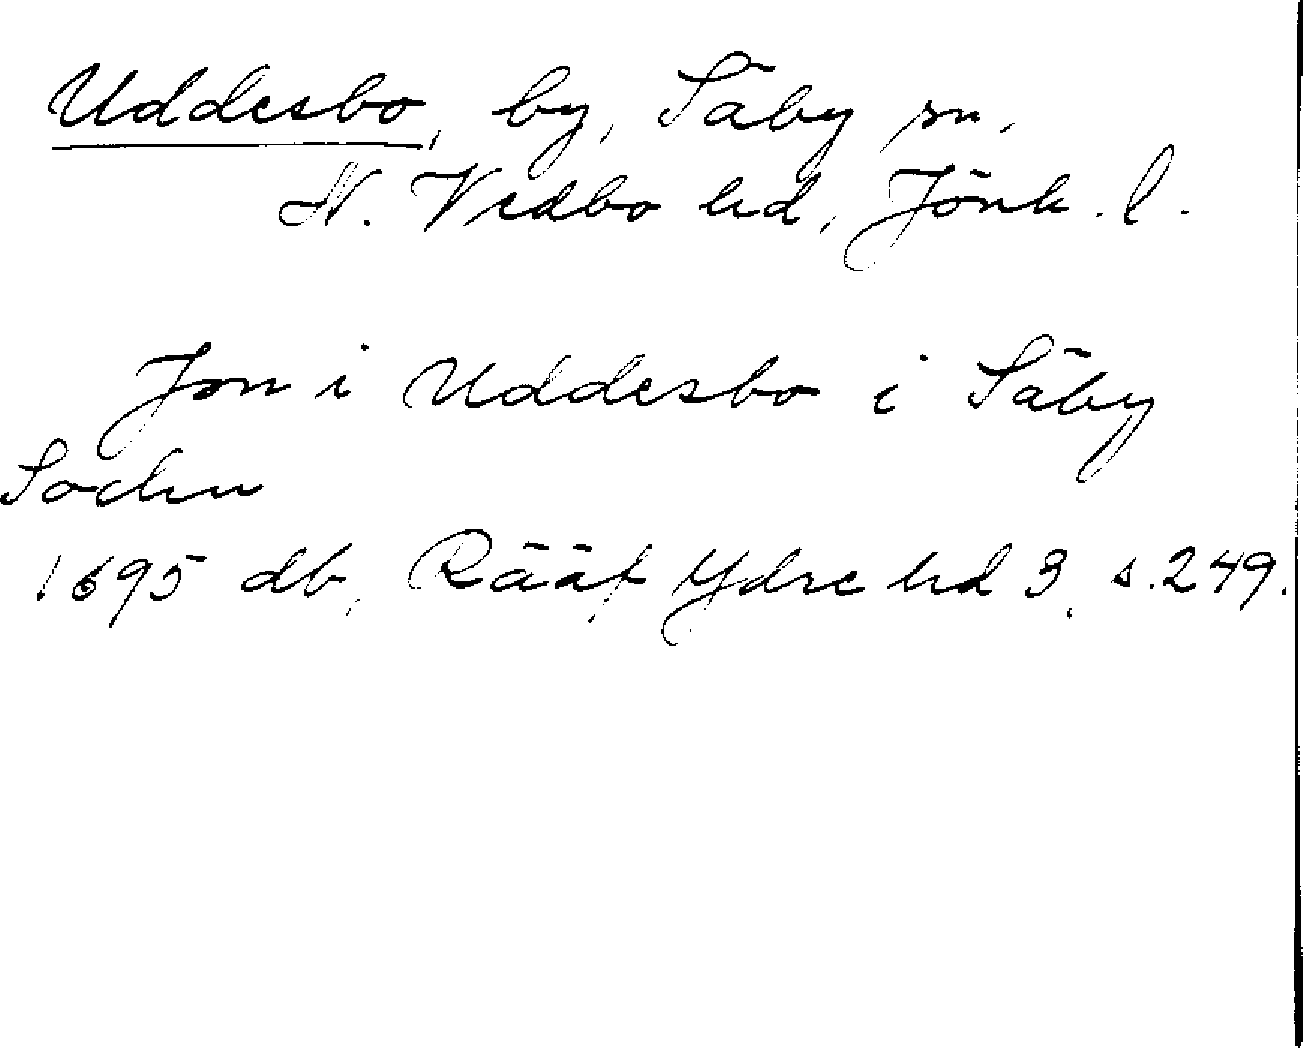 Uddesbo, by, Säby sn,
N. Vedbo hd, Jönk. l.
Jon i Uddesbo i Säby
Sochn
1695 db, Rääf Ydre hd 3, s. 249.